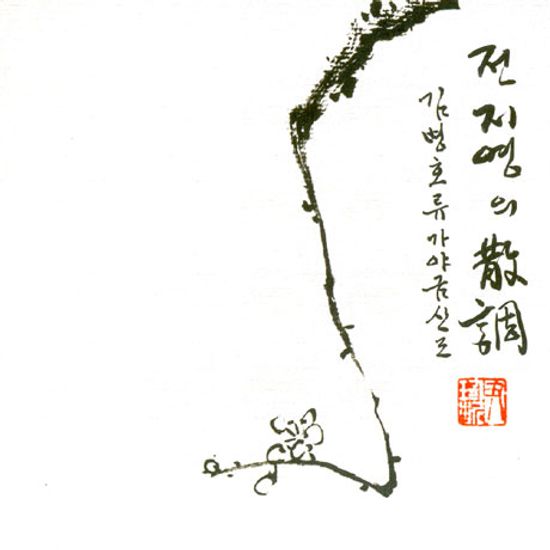 전지영의 散調
김병호류가야금산조